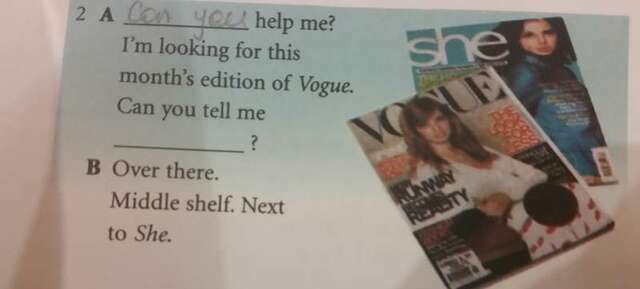 2 A Can you help me?
I'm looking for this
month's edition of Vogue.
Can you tell me
____________ ?
B Over there.
Middle shelf. Next
to She.
she
VOGUE
RUNWAY
REALITY